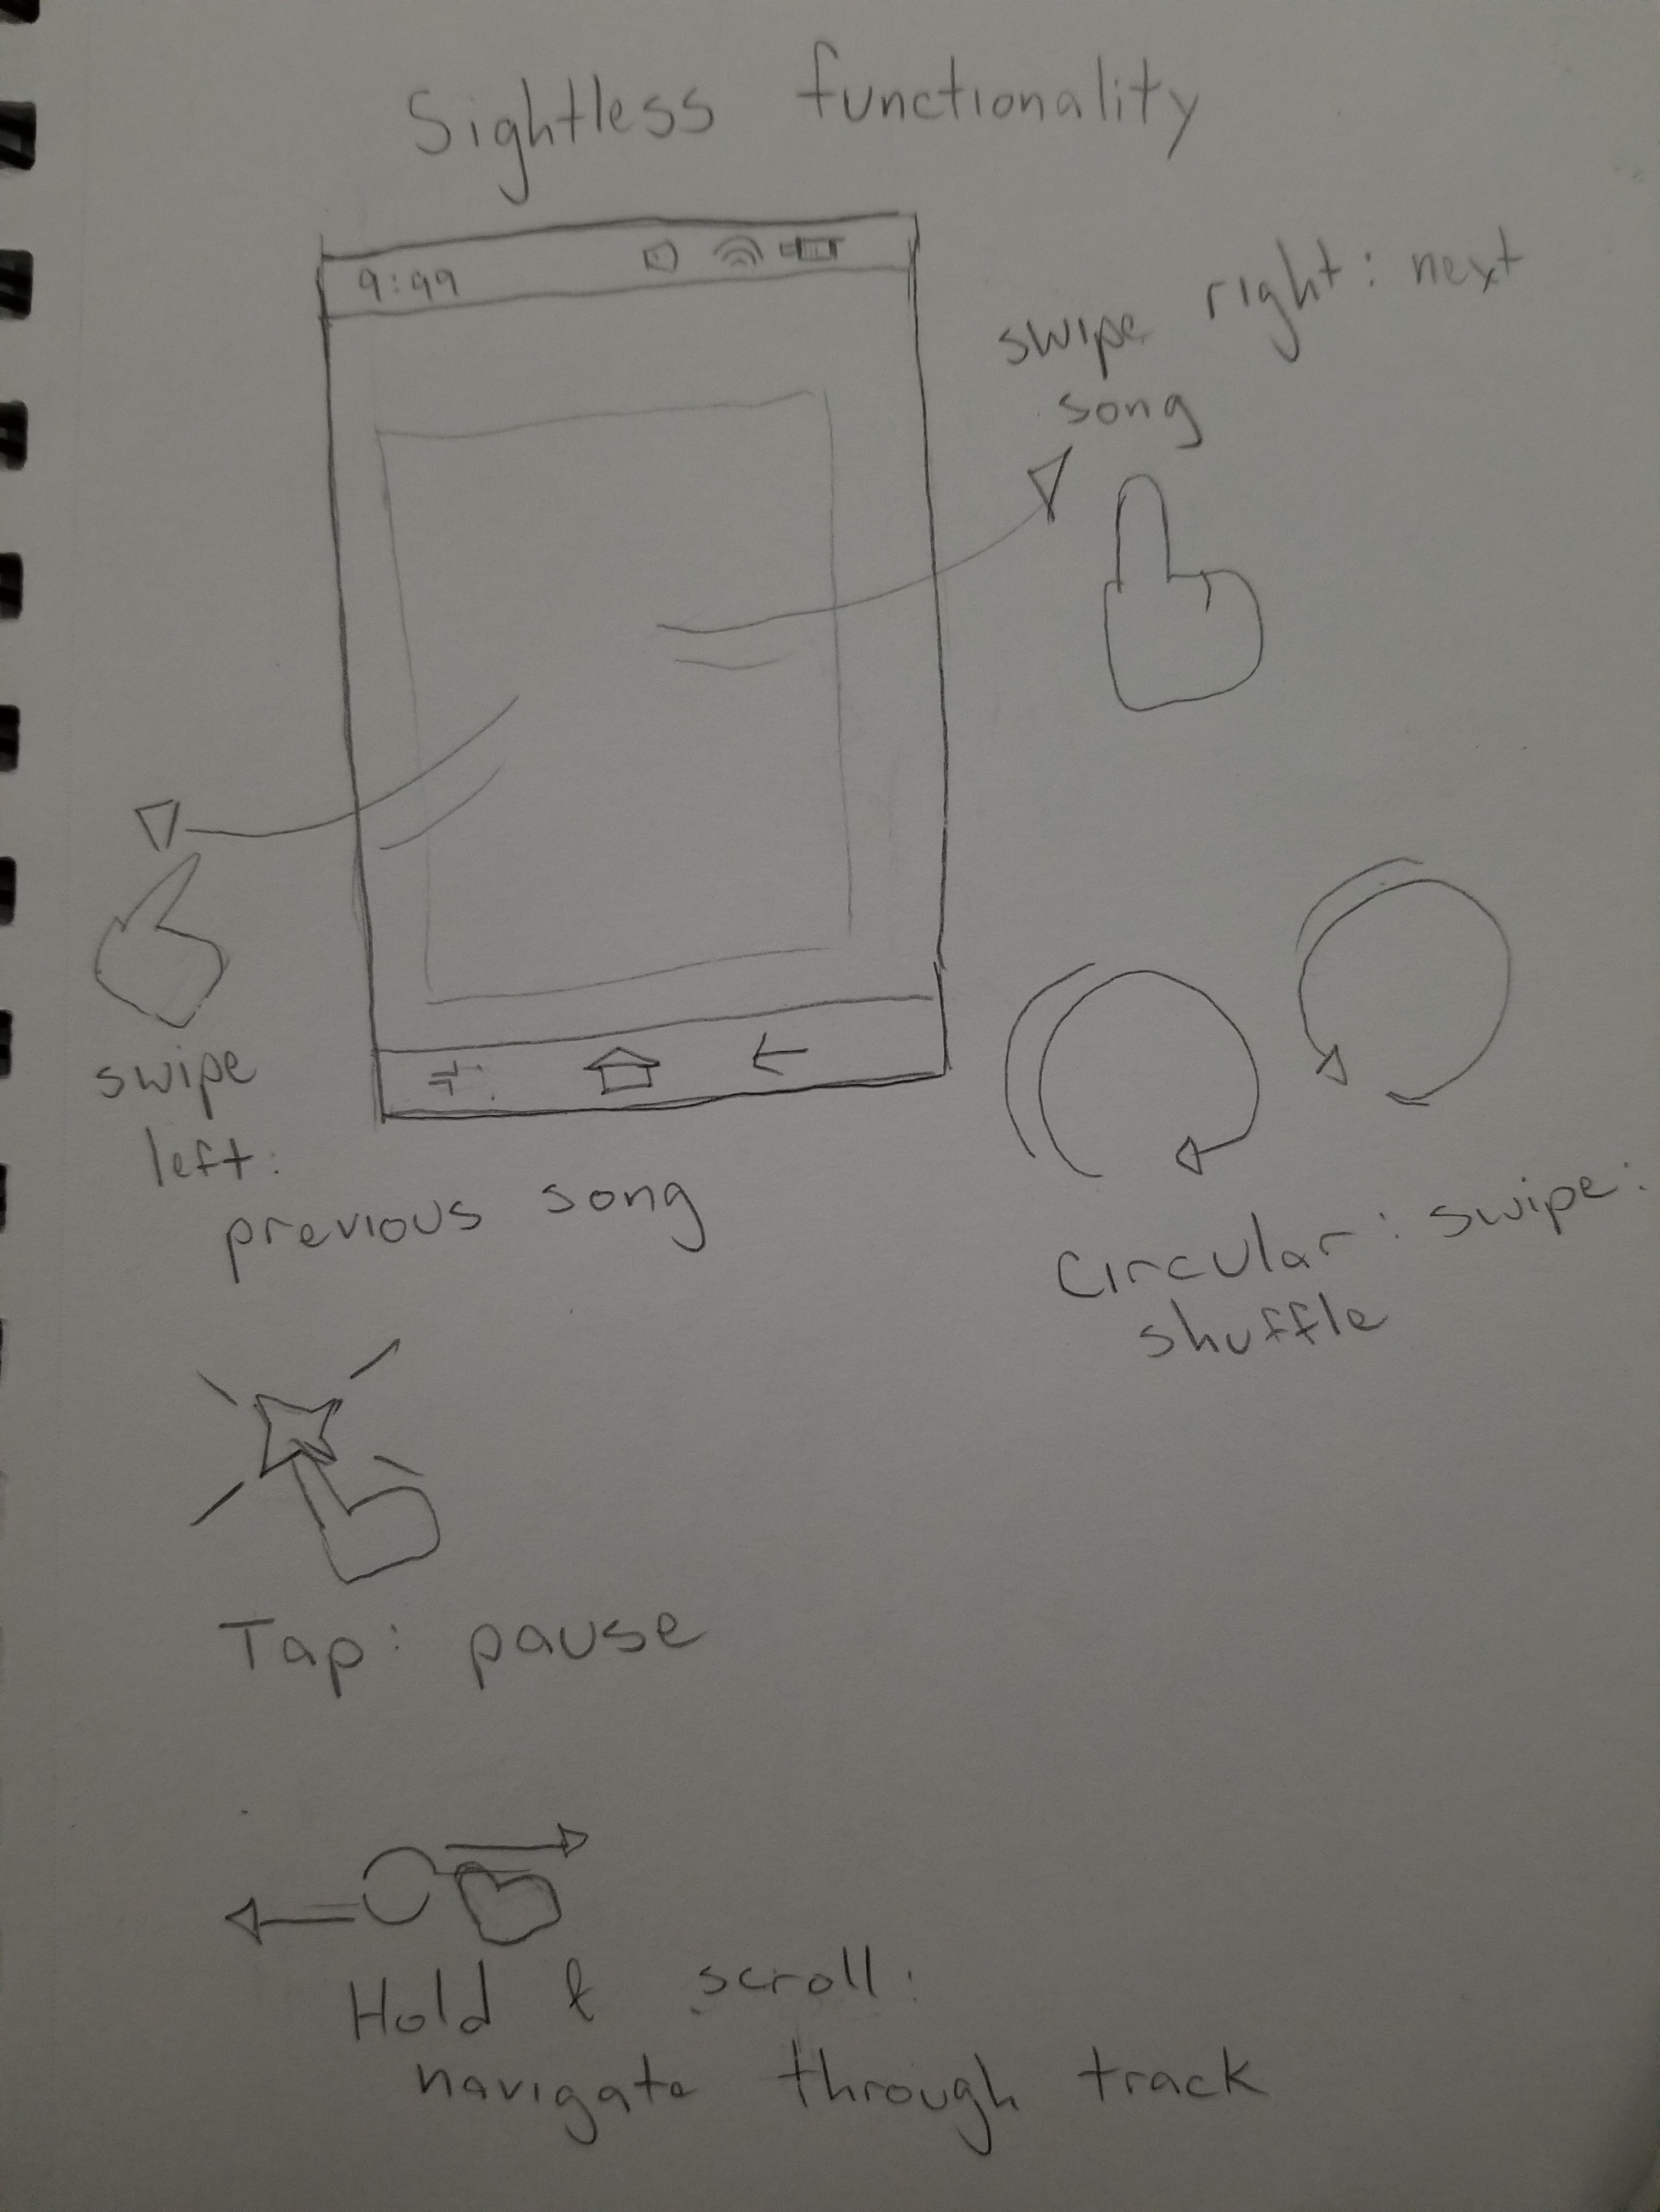 Sightless functionality
9:99
swipe right: next
song
swipe
left:
previous song
Circular: swipe:
shuffle
Tap: pause
Hold & scroll:
navigate through track